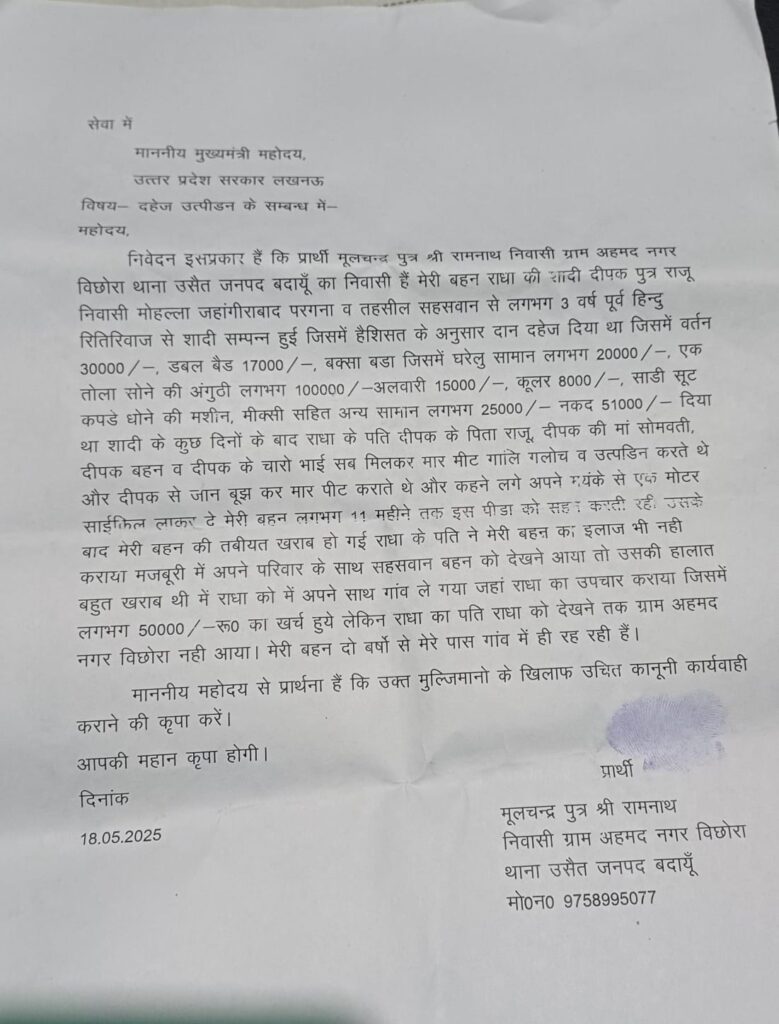 सेवा में
माननीय मुख्यमंत्री महोदय,
उत्तर प्रदेश सरकार लखनऊ
विषय– दहेज उत्पीडन के सम्बन्ध में–
महोदय,
निवेदन इसप्रकार हैं कि प्रार्थी मूलचन्द्र पुत्र श्री रामनाथ निवासी ग्राम अहमद नगर
विछोरा थाना उसैत जनपद बदायूँ का निवासी हैं मेरी बहन राधा की शादी दीपक पुत्र राजू
निवासी मोहल्ला जहांगीराबाद परगना व तहसील सहसवान से लगभग 3 वर्ष पूर्व हिन्दु
रितिरिवाज से शादी सम्पन्न हुई जिसमें हैशिसत के अनुसार दान दहेज दिया था जिसमें वर्तन
30000/–, डबल बैड 17000/–, बक्सा बडा जिसमें घरेलु सामान लगभग 20000/–, एक
तोला सोने की अंगुठी लगभग 100000/–अलवारी 15000/–, कूलर 8000/–, साडी सूट
कपडे धोने की मशीन, मीक्सी सहित अन्य सामान लगभग 25000/– नकद 51000/– दिया
था शादी के कुछ दिनों के बाद राधा के पति दीपक के पिता राजू, दीपक की मां सोमवती,
दीपक बहन व दीपक के चारो भाई सब मिलकर मार मीट गालि गलोच व उत्पडिन करते थे
और दीपक से जान बूझ कर मार पीट कराते थे और कहने लगे अपने मयंके से एक मोटर
साईकिल लाकर दे मेरी बहन लगभग 11 महीने तक इस पीडा को सहन करती रही उसके
बाद मेरी बहन की तबीयत खराब हो गई राधा के पति ने मेरी बहन का इलाज भी नही
कराया मजबूरी में अपने परिवार के साथ सहसवान बहन को देखने आया तो उसकी हालात
बहुत खराब थी में राधा को में अपने साथ गांव ले गया जहां राधा का उपचार कराया जिसमें
लगभग 50000/–रू0 का खर्च हुये लेकिन राधा का पति राधा को देखने तक ग्राम अहमद
नगर विछोरा नही आया। मेरी बहन दो बर्षो से मेरे पास गांव में ही रह रही हैं।
माननीय महोदय से प्रार्थना हैं कि उक्त मुल्जिमानो के खिलाफ उचित कानूनी कार्यवाही
कराने की कृपा करें।
आपकी महान कृपा होगी।
प्रार्थी
दिनांक
18.05.2025
मूलचन्द्र पुत्र श्री रामनाथ
निवासी ग्राम अहमद नगर विछोरा
थाना उसैत जनपद बदायूँ
मो0न0 9758995077